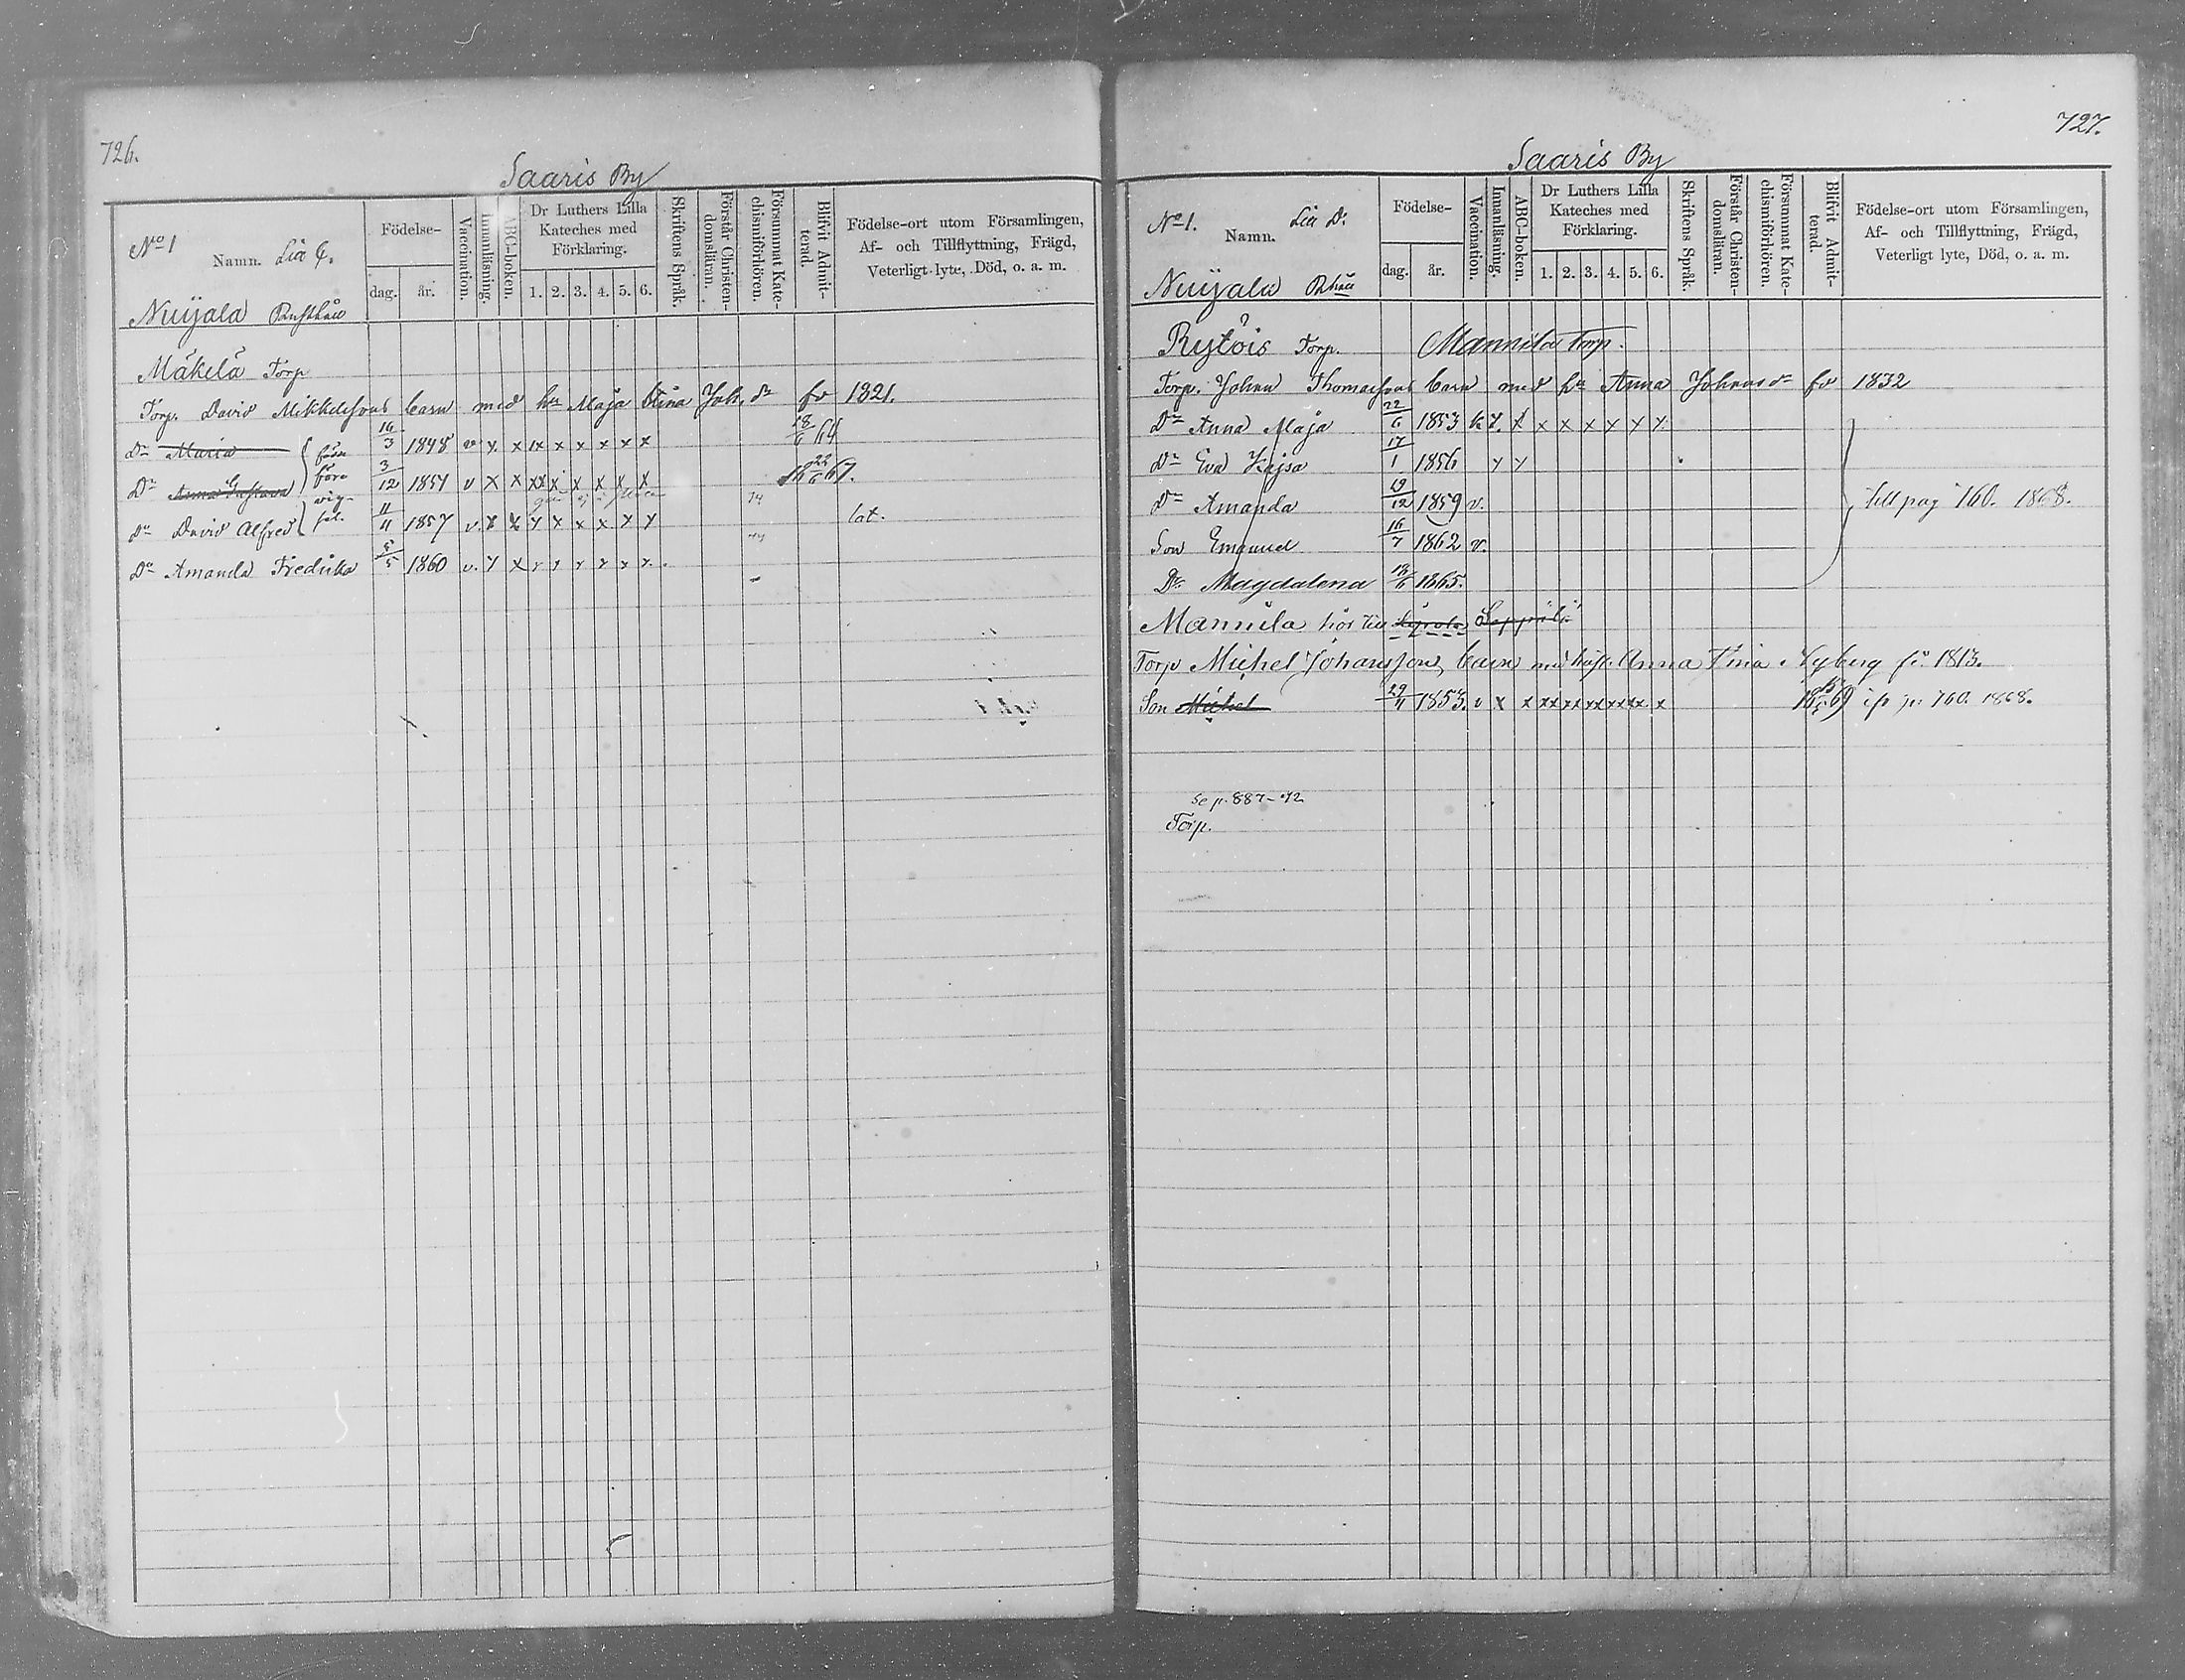 726.
Saaris By
No 1
Namn. Lit C.
Födelse-
dag. år.
Vaccination.
Innanläsning.
ABC-boken.
Dr Luthers Lilla
Kateches med
Förklaring.
1. 2. 3. 4. 5. 6.
Skriftens Språk.
Förstår Christen-
domsläran.
Försummat Kate-
chismiförhören.
Blifvit Admit-
terad.
Födelse-ort utom Församlingen,
Af- och Tillflyttning, Frägd,
Veterligt lyte, Död, o. a. m.
Nuijala Rusthåll
Mäkelä Torp
Torp. David Mikkelssons barn med hu Maja Stina Joh. dr fö 1821.
Dr Maria 16/3 1848 v x x x x x x x x 18/6 64
Dr Anna Gustava 3/12 1851 v x x xx x x x x x 22/6 67.
före
Dn David Alfred 11/11 1857 v. x x x x x x x x 74 lat.
Dr Amanda Fredrika 5/5 1860 v. x x x x x x x x
727.
Saaris By
No 1.
Namn. Lit D.
Födelse-
dag. år.
Vaccination.
Innanläsning.
ABC-boken.
Dr Luthers Lilla
Kateches med
Förklaring.
1. 2. 3. 4. 5. 6.
Skriftens Språk.
Förstår Christen-
domsläran.
Försummat Kate-
chismiförhören.
Blifvit Admit-
terad.
Födelse-ort utom Församlingen,
Af- och Tillflyttning, Frägd,
Veterligt lyte, Död, o. a. m.
Nuijala Rhåll
Rytöis Torp. Mannila Torp.
Torp. Johan Thomassons barn med hu Anna Johans dr fö 1832
Dr Anna Maja 22/6 1853 v x. x x x x x x x
Dr Eva Kajsa 17/1 1856 x x
Dr Amanda 19/12 1859 v. till pag 760. 1868.
Son Emanuel 16/7 1862 v.
Dr Magdalena 1865.
Mannila hör till Kyrola Seppälä
Torp Michel Johansson, barn med hust. Anna Stina Nyberg fö. 1813.
Son Michel 29/11 1853. v x x xx xx xx xx xx x 69 p. 760. 1868.
Se p. 887-72
Torp.